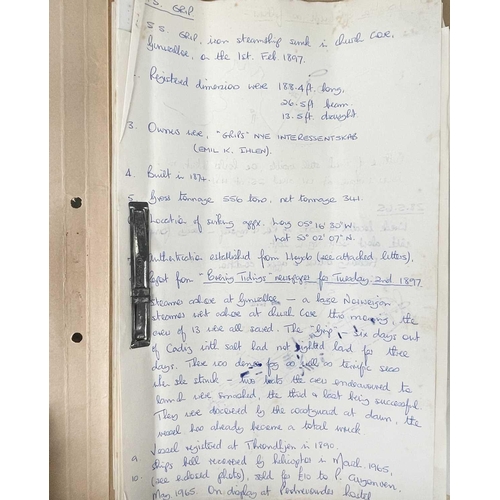 S.S. GRIP
S.S. GRIP, iron steamship sunk in church Cove,
Gunwalloe, on the 1st. Feb 1897.
Registered dimensions were 188.4ft. long,
26.5ft beam.
13.5ft draught.
3. Owners were, "GRIPS" NYE INTERESSENTSKAB
(EMIL K. IHLEN).
4. Built in 1874.
5. Gross tonnage 550 tons, net tonnage 344.
Location of sinking appx. long 05° 16' 30" W.
Lat 50° 02' 07" N.
Authentication established from Lloyds (see attached letters).
Report from "Evening Tidings" newspaper for Tuesday 2nd 1897.
steamer ashore at Gunwalloe - a large Norwegian
steamer went ashore at church Cove this morning, the
crew of 13 were all saved. The "Grip" - six days out
of Cadiz with salt had not sighted land for three
days. There was dense fog as well as terrific seas
when she struck - two boats the crew endeavoured to
launch were smashed, the third boat being successful.
They were discovered by the coastguard at dawn, the
vessel has already become a total wreck
Vessel registered at Throndhjem in 1890.
9. Ships bell recovered by helicopter in March 1965,
10. (see enclosed photos), sold for £10 to P. Curgenven,
May 1965. On display at Porthleven